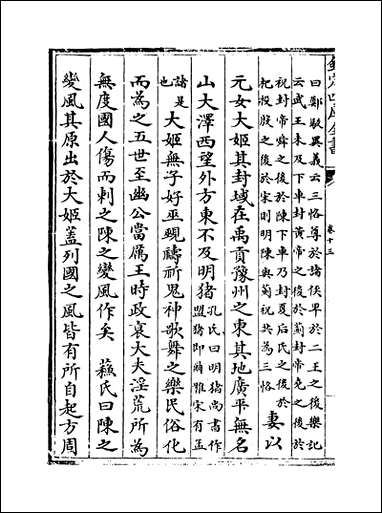 欽定四庫全書
卷十三
曰鄭駁異義云三恪尊於諸侯卑於二王之後樂記
云武王未及下車封黃帝之後於薊封帝堯之後於
祝封帝舜之後於陳下車乃封夏后氏之後於
杞投殷之後於宋則明陳與薊祝共為三恪
妻以
元女大姬其封域在禹貢豫州之東其地廣平無名
山大澤西望外方東不及明豬
孔氏曰明豬尚書作
盟豬即爾雅宋有孟
諸是
也
大姬無子好巫覡禱祈鬼神歌舞之樂民俗化
而為之五世至幽公當厲王時政衰大夫淫荒所為
無度國人傷而刺之陳之變風作矣 蘇氏曰陳之
變風其原出於大姬蓋列國之風皆有所自起方周